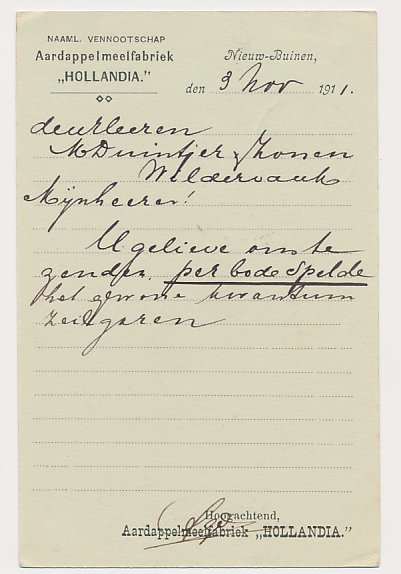 NAAML. VENNOOTSCHAP
Aardappelmeelfabriek
„HOLLANDIA."
Nieuw-Buinen,
den 3 Nov 1911.
den Heeren
Duintjer & Zonen
Wildervank
Mijnheeren!
U gelieve ons te
zenden per bode Spelde
het gewone kwantum
zeilgaren
Hoogachtend,
Aardappelmeelfabriek „HOLLANDIA."